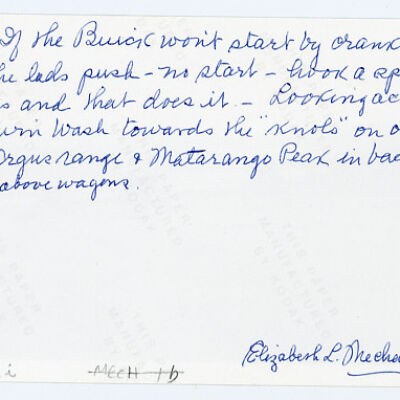 If the Buick won't start by crank
he lads push - no start - hook a sp
s and that does it. - Looking ac
urin Wash towards the "Knols" on o
rgus range & Matarango Peak in bac
above wagons.
THIS PAPER
MANUFACTURED
BY KODAK
Elizabeth L. Mecha
i MECH 1b